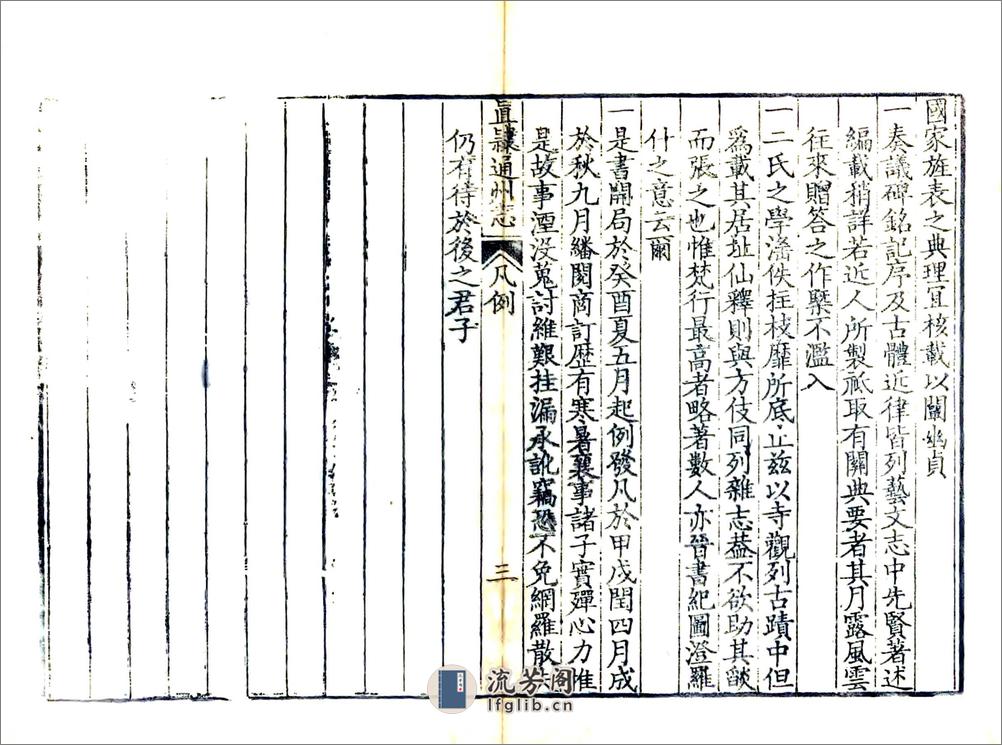 國家旌表之典理宜核載以闡幽貞
一奏議碑銘記序及古體近律皆列藝文志中先賢著述
編載稍詳若近人所製祗取有關典要者其月露風雲
往來贈答之作槩不濫入
一二氏之學滛佚拄枝靡所底止兹以寺觀列古蹟中但
爲載其居址仙釋則與方伎同列雜志葢不欲助其燄
而張之也惟梵行最高者略著數人亦晉書紀圖澄羅
什之意云爾
一是書開局於癸酉夏五月起例發凡於甲戌閏四月成
於秋九月繙閱商訂歴有寒暑襄事諸子實殫心力惟
是故事湮没蒐討維艱挂漏承訛竊恐不免網羅散失
仍有待於後之君子
直隸通州志
凡例
三
流芳阁
lfglib.cn